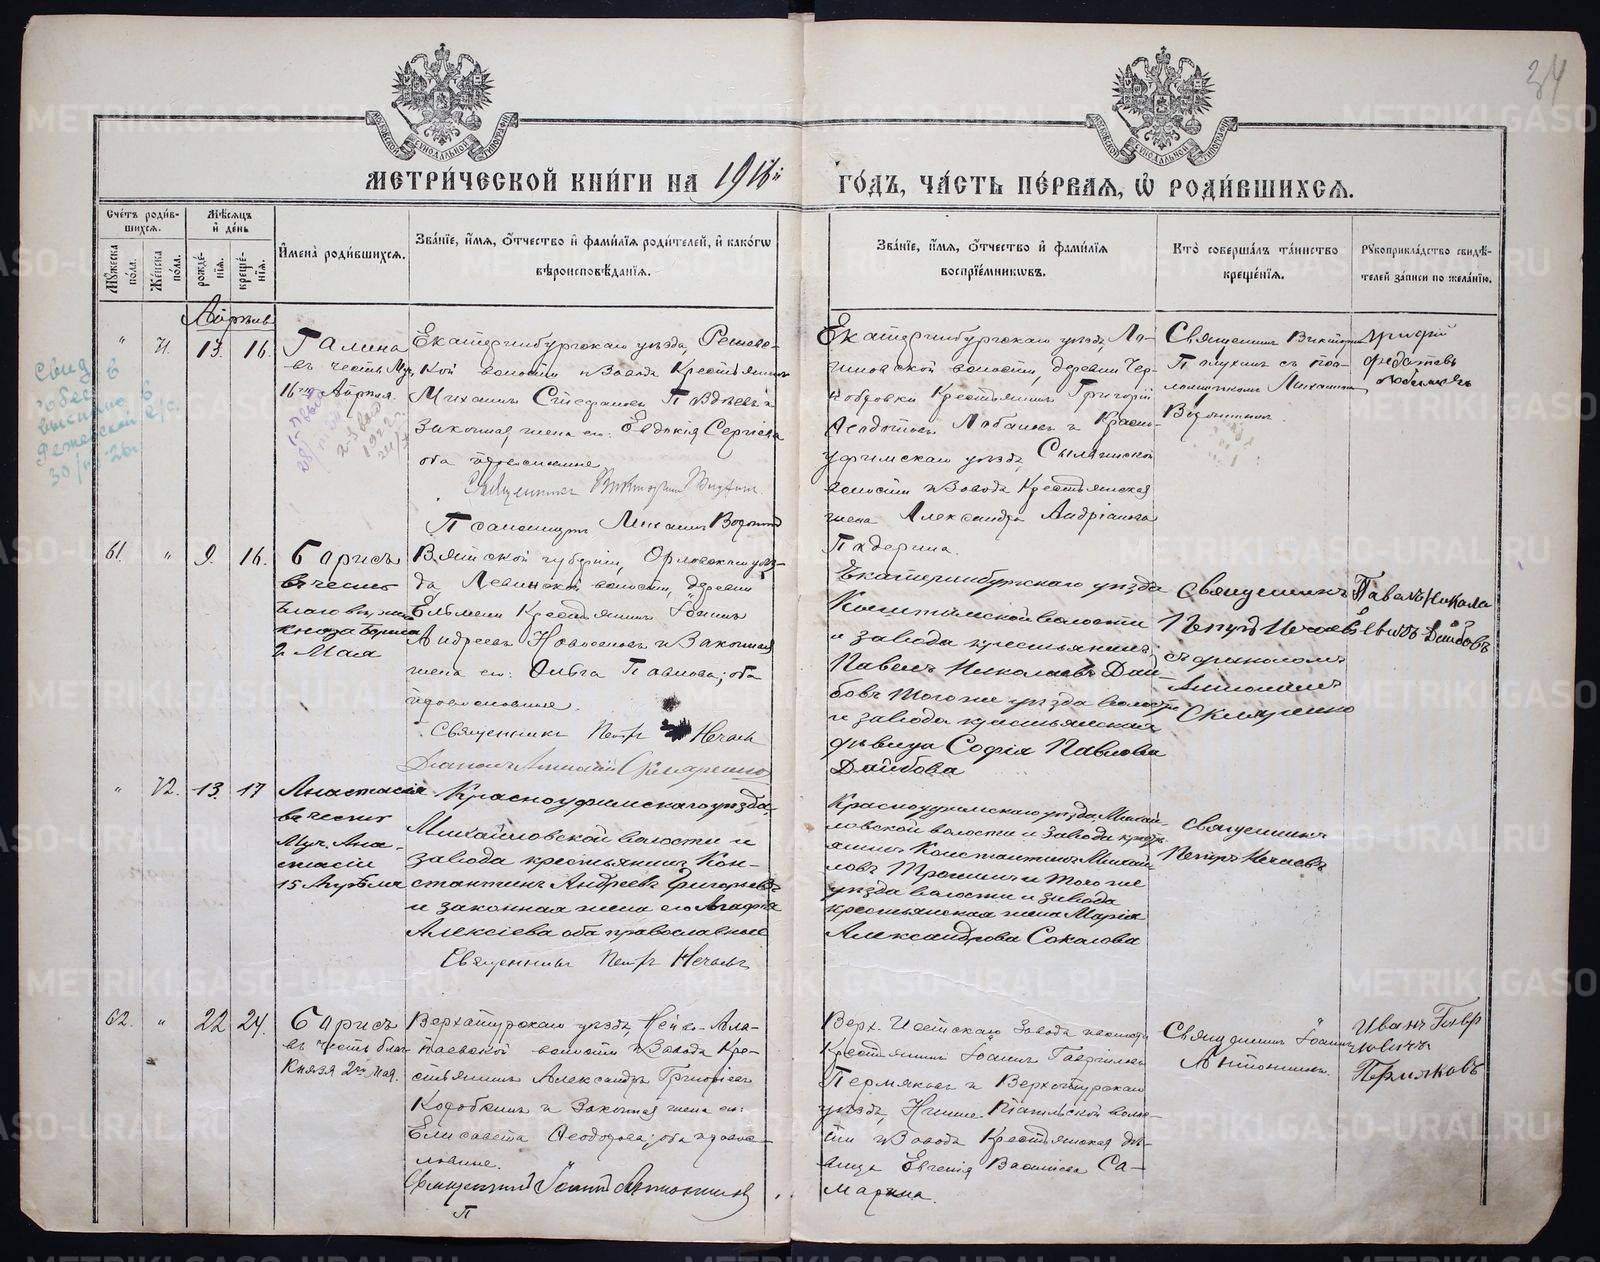 34
МЕТРИ́ЧЕСКОЙ КНИ́ГИ НА 1916й ГО́ДЪ, ЧА́СТЬ ПЕ́РВАЯ, Ѡ҆ РОДИ́ВШИХСЯ.
Сче́тъ роди́в-
шихся.
Мѣ́сяцъ
и҆ де́нь
Му́жеска по́ла.
Же́нска по́ла.
рожде́-
нїя.
креще́-
нїя.
И҆мена̀ роди́вшихся.
Зва́нїе, и҆́мя, ѻ҆́тчество и҆ фами́лїя роди́телей, и҆ како́гѡ
вѣроисповѣ́данїя.
Зва́нїе, и҆́мя, ѻ҆́тчество и҆ фами́лїя
воспрїе́мникѡвъ.
Кто̀ соверша́лъ та́инство
креще́нїя.
Рꙋкоприкла́дство свидѣ́-
телей за́писи по жела́нїю.
Апрѣль
" 71. 13. 16.
Галина
въ честь Муч.
16го Апрѣля.
Екатеринбургскаго уѣзда, Режевс-
кой волости и Завода Крестьянинъ
Михаилъ Стефановъ
Законная жена его: Евдокія Сергіева
оба православные
Священникъ Викторинъ
Псаломщикъ Михаилъ
Екатеринбургскаго уѣзда, Ло-
гиновской волости, деревни Чер-
нобровки Крестьянинъ Григорій
Ѳедотовъ Лобановъ и Красно-
уфимскаго уѣзда, Сылвинской
волости и Завода Крестьянская
жена Александра Андріанова
Падерина.
Священникъ Викторинъ
съ псал-
омщикомъ Михаиломъ
Григорій
Федотовъ
61. " 9. 16.
Борисъ
въ честь
Благовѣрнаго
князя Бориса
2 Мая
Вятской губерніи, Орловскаго уѣз-
да, Левинской волости, деревни
Крестьянинъ Іоаннъ
Андреевъ Новоселовъ и Законная
жена его: Ольга Павлова; оба
православные.
Священникъ Петръ Нечаевъ
Діаконъ Антоній Скляренко
Екатеринбургскаго уѣзда
Кыштымской волости
и завода крестьянинъ
Павелъ Николаевъ Дай-
бовъ того же уѣзда волости
и завода крестьянская
дѣвица Софія Павлова
Дайбова
Священникъ
Петръ Нечаевъ
съ діакономъ
Антоніемъ
Скляренко
Павелъ Никола
евичъ Дайбовъ
" 72. 13. 17
Анастасія
въ честь
Муч. Ана-
стасіи
15 Апрѣля
Красноуфимскаго уѣзда,
Михайловской волости и
завода крестьянинъ Кон-
стантинъ Андреевъ Григорьевъ
и законная жена его Агафія
Алексіева оба православные
Священникъ Петръ Нечаевъ
Красноуфимскаго уѣзда Михай-
ловской волости и завода кресть-
янинъ Константинъ Михай-
ловъ Трошинъ и того же
уѣзда волости и завода
крестьянская жена Марія
Александрова Соколова
Священникъ
Петръ Нечаевъ
62. " 22 24.
Борисъ
въ честь благ.
Князя 2го Мая.
Верхотурскаго уѣзда, Нейво-Ала-
паевской волости и Завода Кре-
стьянинъ Александръ Григоріевъ
Коробкинъ и Законная жена его:
Елисавета Ѳеодорова; оба право-
славные.
Священникъ Іоаннъ
П
Верх-Исетскаго Завода
Крестьянинъ Іоаннъ Гавріиловъ
Пермяковъ и Верхотурскаго
уѣзда, Нижне-Тагильской воло-
сти и Завода Крестьянская дѣ-
вица Евгенія Василіева Са-
марина.
Священникъ Іоаннъ
Иванъ Гавр
иловичъ
Пермяковъ
METRIKI.GASO-URAL.RU